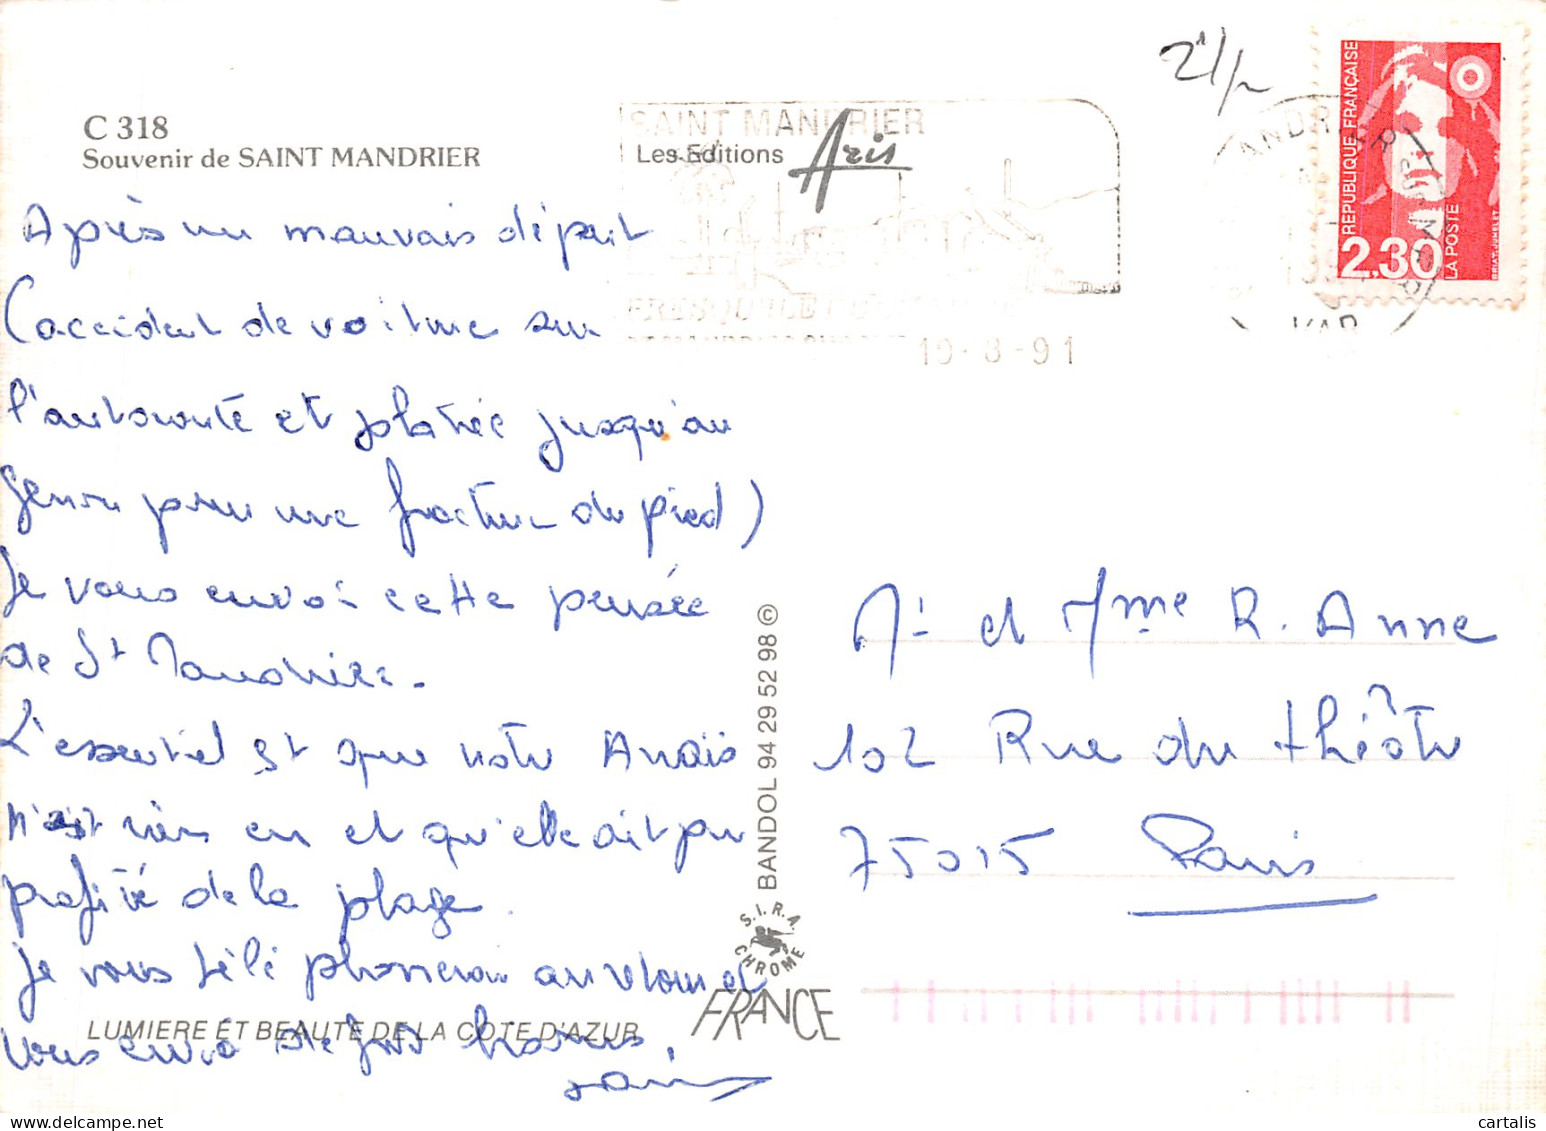 C 318
Souvenir de SAINT MANDRIER
Les Editions Aris
SAINT MANDRIER
19-8-91
21/
RÉPUBLIQUE FRANÇAISE
2,30
LA POSTE
VAR
Après un mauvais départ
(accident de voiture sur
l'autoroute et platrée jusqu'au
genou pour une fracture du pied)
Je vous envoie cette pensée
de St Mandrier.
L'essentiel est que notre Anaïs
n'est rien eu et qu'elle ait pu
profité de la plage.
Je vous téléphonerai au retour et
vous envoie de gros bisous.
Mr et Mme R. Anne
102 Rue du théâtre
75015 Paris
BANDOL 94 29 52 98 ©
S.I.R.A.
CHROME
FRANCE
LUMIERE ET BEAUTE DE LA COTE D'AZUR
cartalis